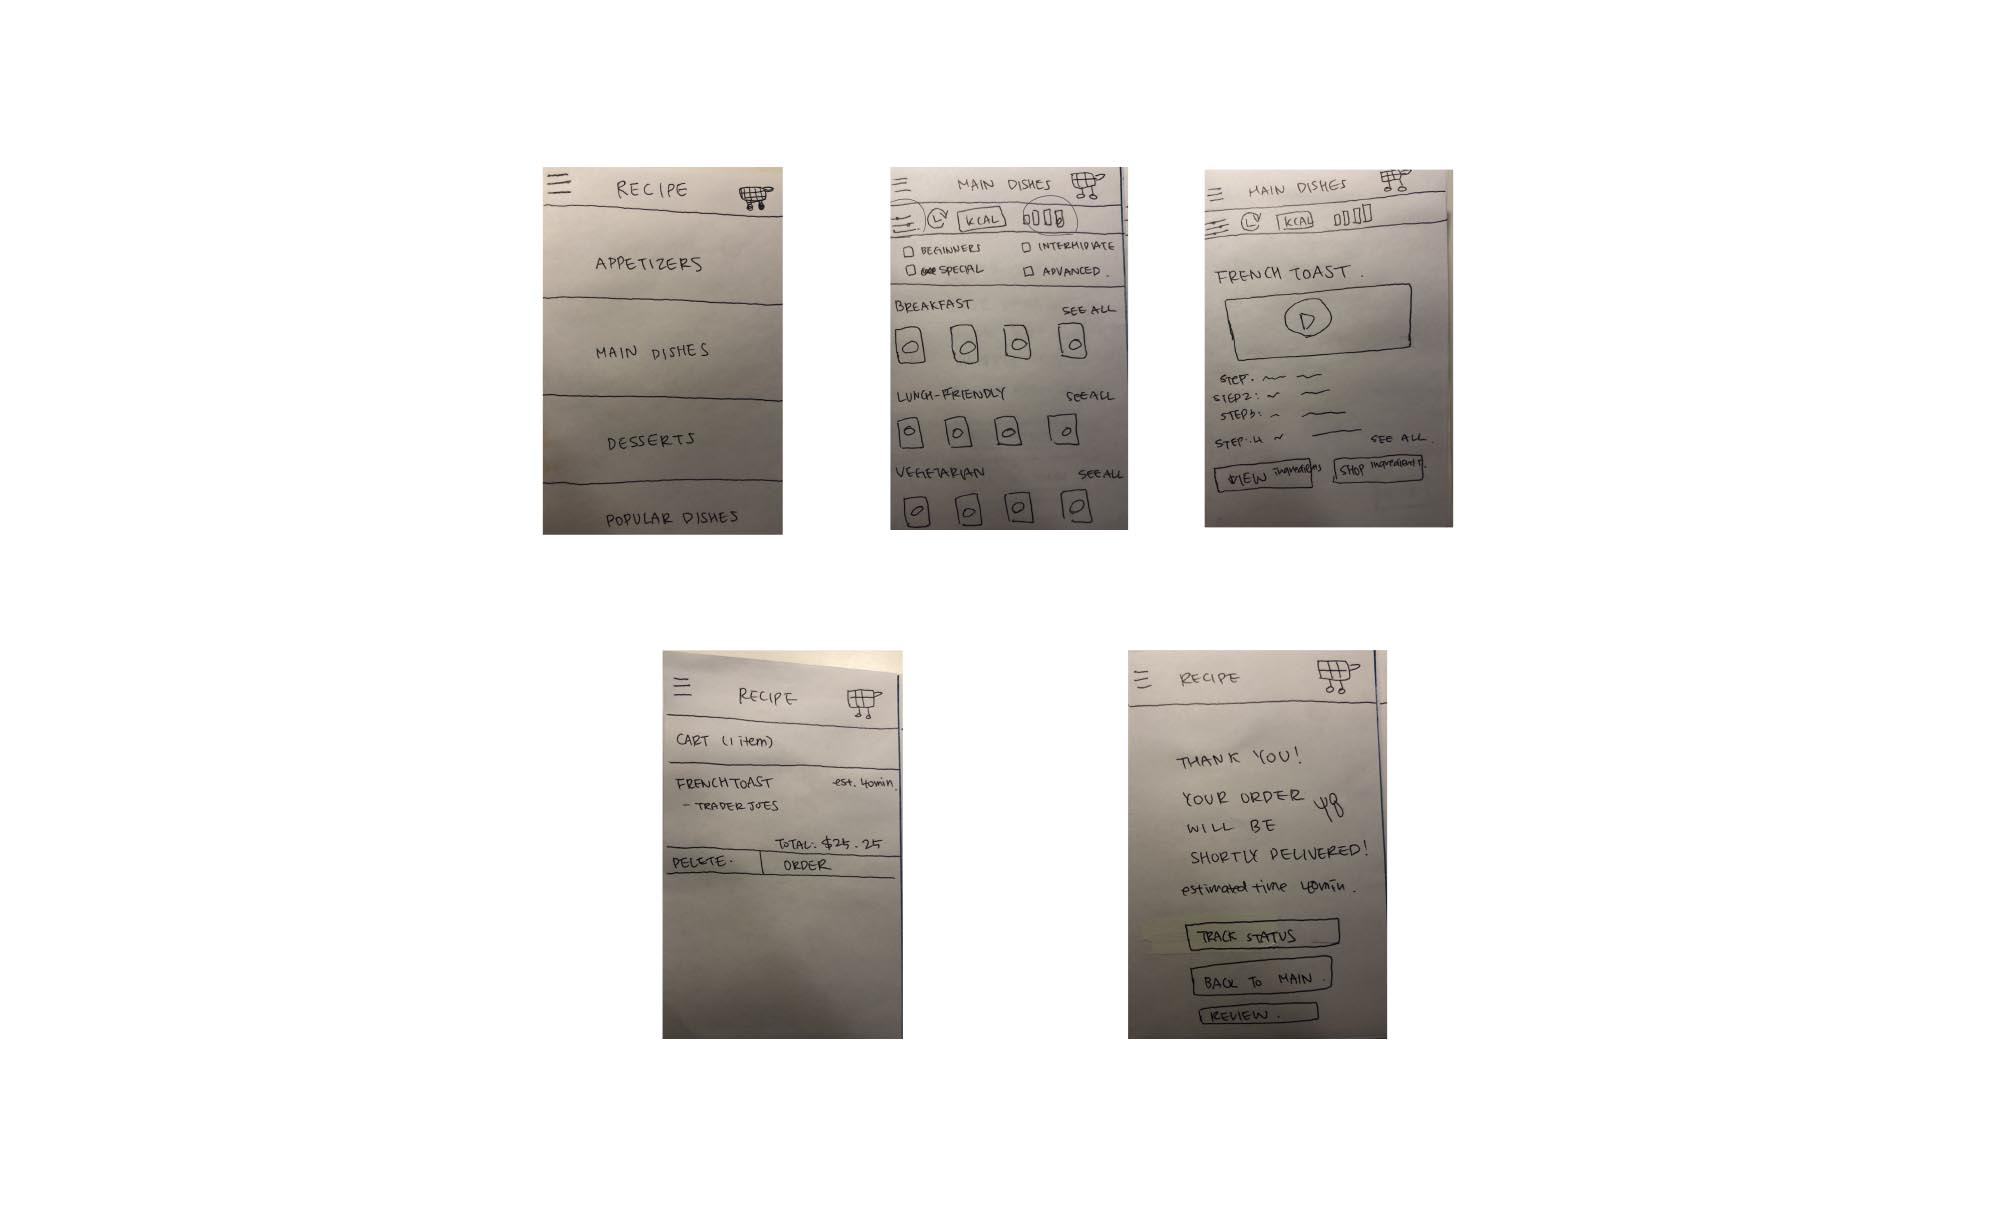 RECIPE
APPETIZERS
MAIN DISHES
DESSERTS
POPULAR DISHES
MAIN DISHES
KCAL
BEGINNERS INTERMIDIATE
SPECIAL ADVANCED.
BREAKFAST SEE ALL
LUNCH-FRIENDLY SEE ALL
VEGETARIAN SEE ALL
MAIN DISHES
KCAL
FRENCH TOAST.
STEP.
STEP2:
STEP3:
STEP.4 SEE ALL.
VIEW ingredients SHOP ingredient.
RECIPE
CART (1 item)
FRENCH TOAST est. 40min.
- TRADER JOES
TOTAL: $25.25
DELETE. ORDER
RECIPE
THANK YOU!
YOUR ORDER
WILL BE
SHORTLY DELIVERED!
estimated time 40min.
TRACK STATUS
BACK TO MAIN.
REVIEW.